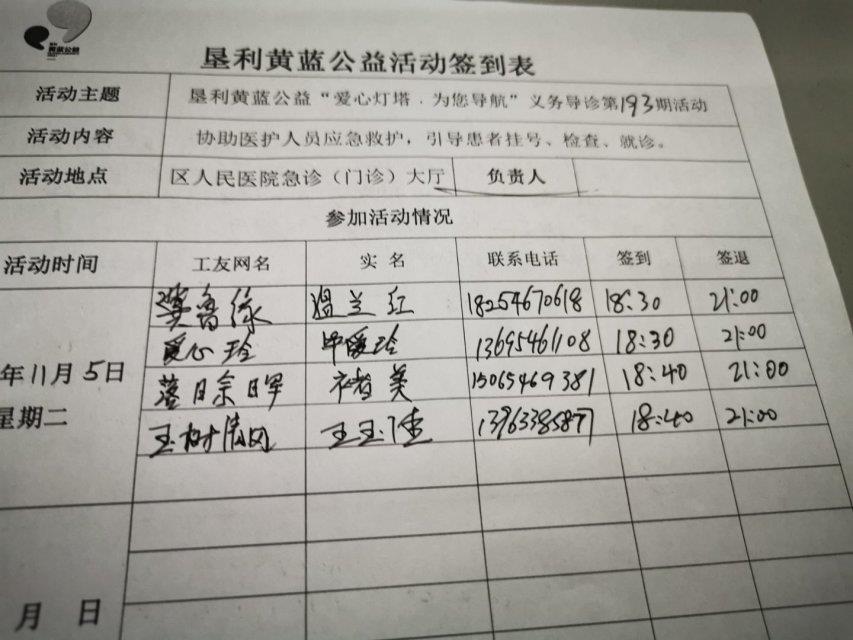 黄蓝公益
垦利黄蓝公益活动签到表
活动主题 垦利黄蓝公益“爱心灯塔.为您导航”义务导诊第193期活动
活动内容 协助医护人员应急救护，引导患者挂号、检查、就诊。
活动地点 区人民医院急诊（门诊）大厅 负责人
参加活动情况
活动时间 工友网名 实名 联系电话 签到 签退
温兰红 18254670618 18:30 21:00
爱心玲 毕爱玲 13695461108 18:30 21:00
年11月5日 落日余晖 褚美 15065469381 18:40 21:00
星期二 玉树临风 王玉佳 18:40 21:00
月 日